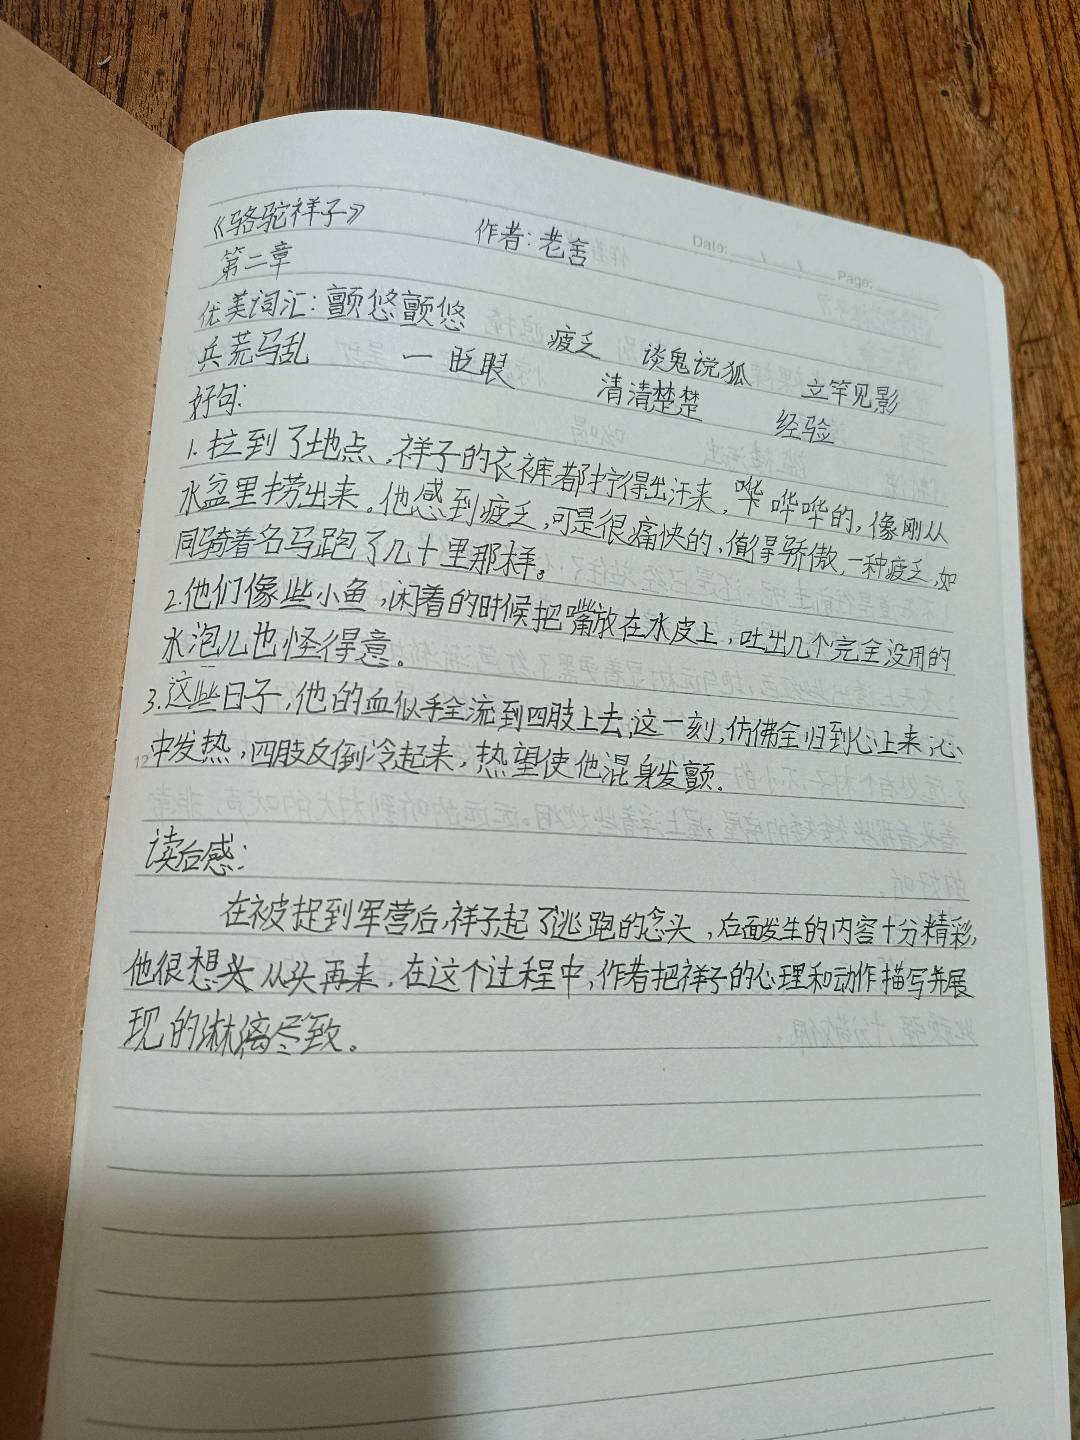 《骆驼祥子》 作者：老舍
Date: Page:
第二章
优美词汇：颤悠颤悠 疲乏 谈鬼说狐 立竿见影
兵荒马乱 一眨眼 清清楚楚 经验
好句：
1.拉到了地点，祥子的衣裤都拧得出汗来，哗哗哗的，像刚从
水盆里捞出来。他感到疲乏，可是很痛快的，值得骄傲，一种疲乏，如
同骑着名马跑了几十里那样。
2.他们像些小鱼，闲着的时候把嘴放在水皮上，吐出几个完全没用的
水泡儿也怪得意。
3.这些日子，他的血似乎全流到四肢上去，这一刻，仿佛全归到心上来，心
中发热，四肢反倒冷起来，热望使他混身发颤。
12
读后感：
在被捉到军营后，祥子起了逃跑的念头，后面发生的内容十分精彩，
他很想从头再来，在这个过程中，作者把祥子的心理和动作描写并展
现的淋漓尽致。